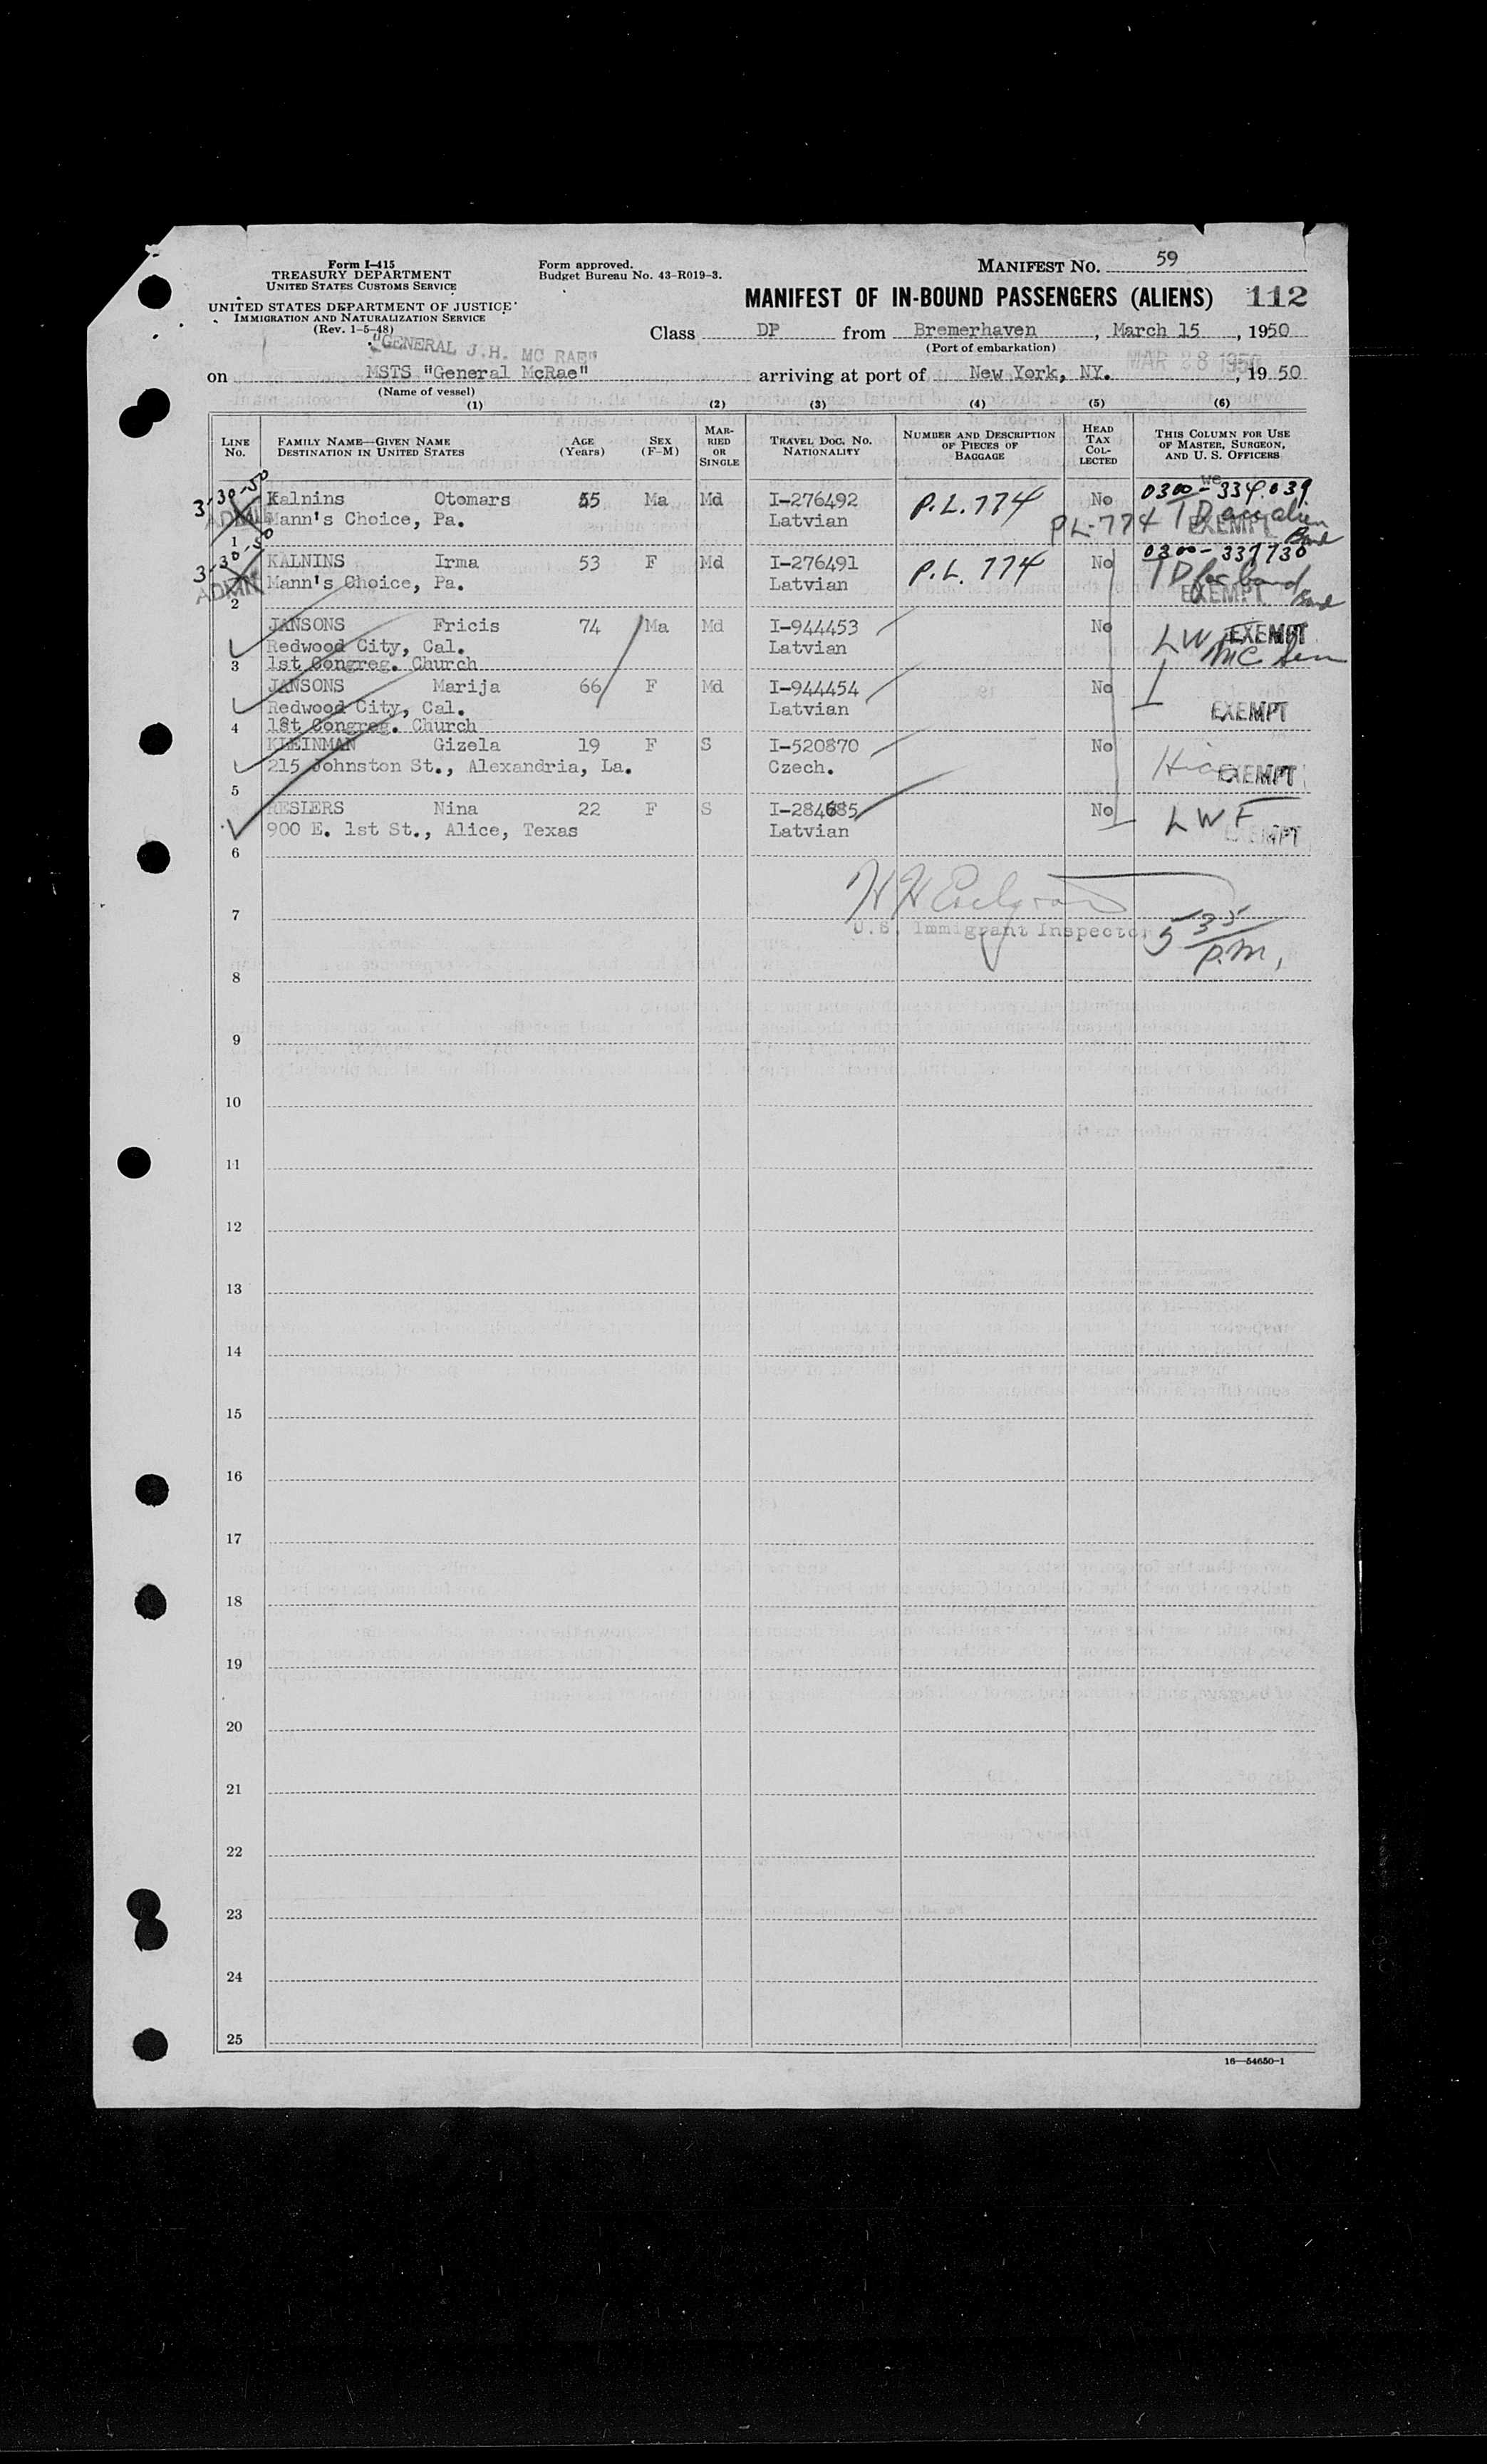 Form I-415
TREASURY DEPARTMENT
UNITED STATES CUSTOMS SERVICE
UNITED STATES DEPARTMENT OF JUSTICE
IMMIGRATION AND NATURALIZATION SERVICE
(Rev. 1-5-48)
Form approved.
Budget Bureau No. 43-R019-3.
MANIFEST NO. 59
MANIFEST OF IN-BOUND PASSENGERS (ALIENS) 112
Class DP from Bremerhaven, March 15, 1950
(Port of embarkation)
"GENERAL J.H. MC RAE"
MAR 28 1950
on MSTS "General McRae" arriving at port of New York, NY., 1950
(Name of vessel)
(1) (2) (3) (4) (5) (6)
LINE NO.
FAMILY NAME—GIVEN NAME
DESTINATION IN UNITED STATES
AGE (Years)
SEX (F-M)
MARRIED OR SINGLE
TRAVEL DOC. NO.
NATIONALITY
NUMBER AND DESCRIPTION OF PIECES OF BAGGAGE
HEAD TAX COLLECTED
THIS COLUMN FOR USE OF MASTER, SURGEON, AND U. S. OFFICERS
3-30-50 Kalnins Otomars 55 Ma Md I-276492 P.L.774 No 0300-334.039
ADMIN Mann's Choice, Pa. Latvian PL-774 EXEMPT
1
3-30-50 KALNINS Irma 53 F Md I-276491 P.L. 774 No 0300-337730
ADMIN Mann's Choice, Pa. Latvian EXEMPT
2
JANSONS Fricis 74 Ma Md I-944453 No EXEMPT
Redwood City, Cal. Latvian LWF
3 1st Congreg. Church
JANSONS Marija 66 F Md I-944454 No
Redwood City, Cal. Latvian EXEMPT
4 1st Congreg. Church
KLEINMAN Gizela 19 F S I-520870 No
215 Johnston St., Alexandria, La. Czech. EXEMPT
5
RESIERS Nina 22 F S I-284685 No LWF
900 E. 1st St., Alice, Texas Latvian EXEMPT
6
7
U.S. Immigrant Inspector 5 35
P.M.
8
9
10
11
12
13
14
15
16
17
18
19
20
21
22
23
24
25
16—54650-1